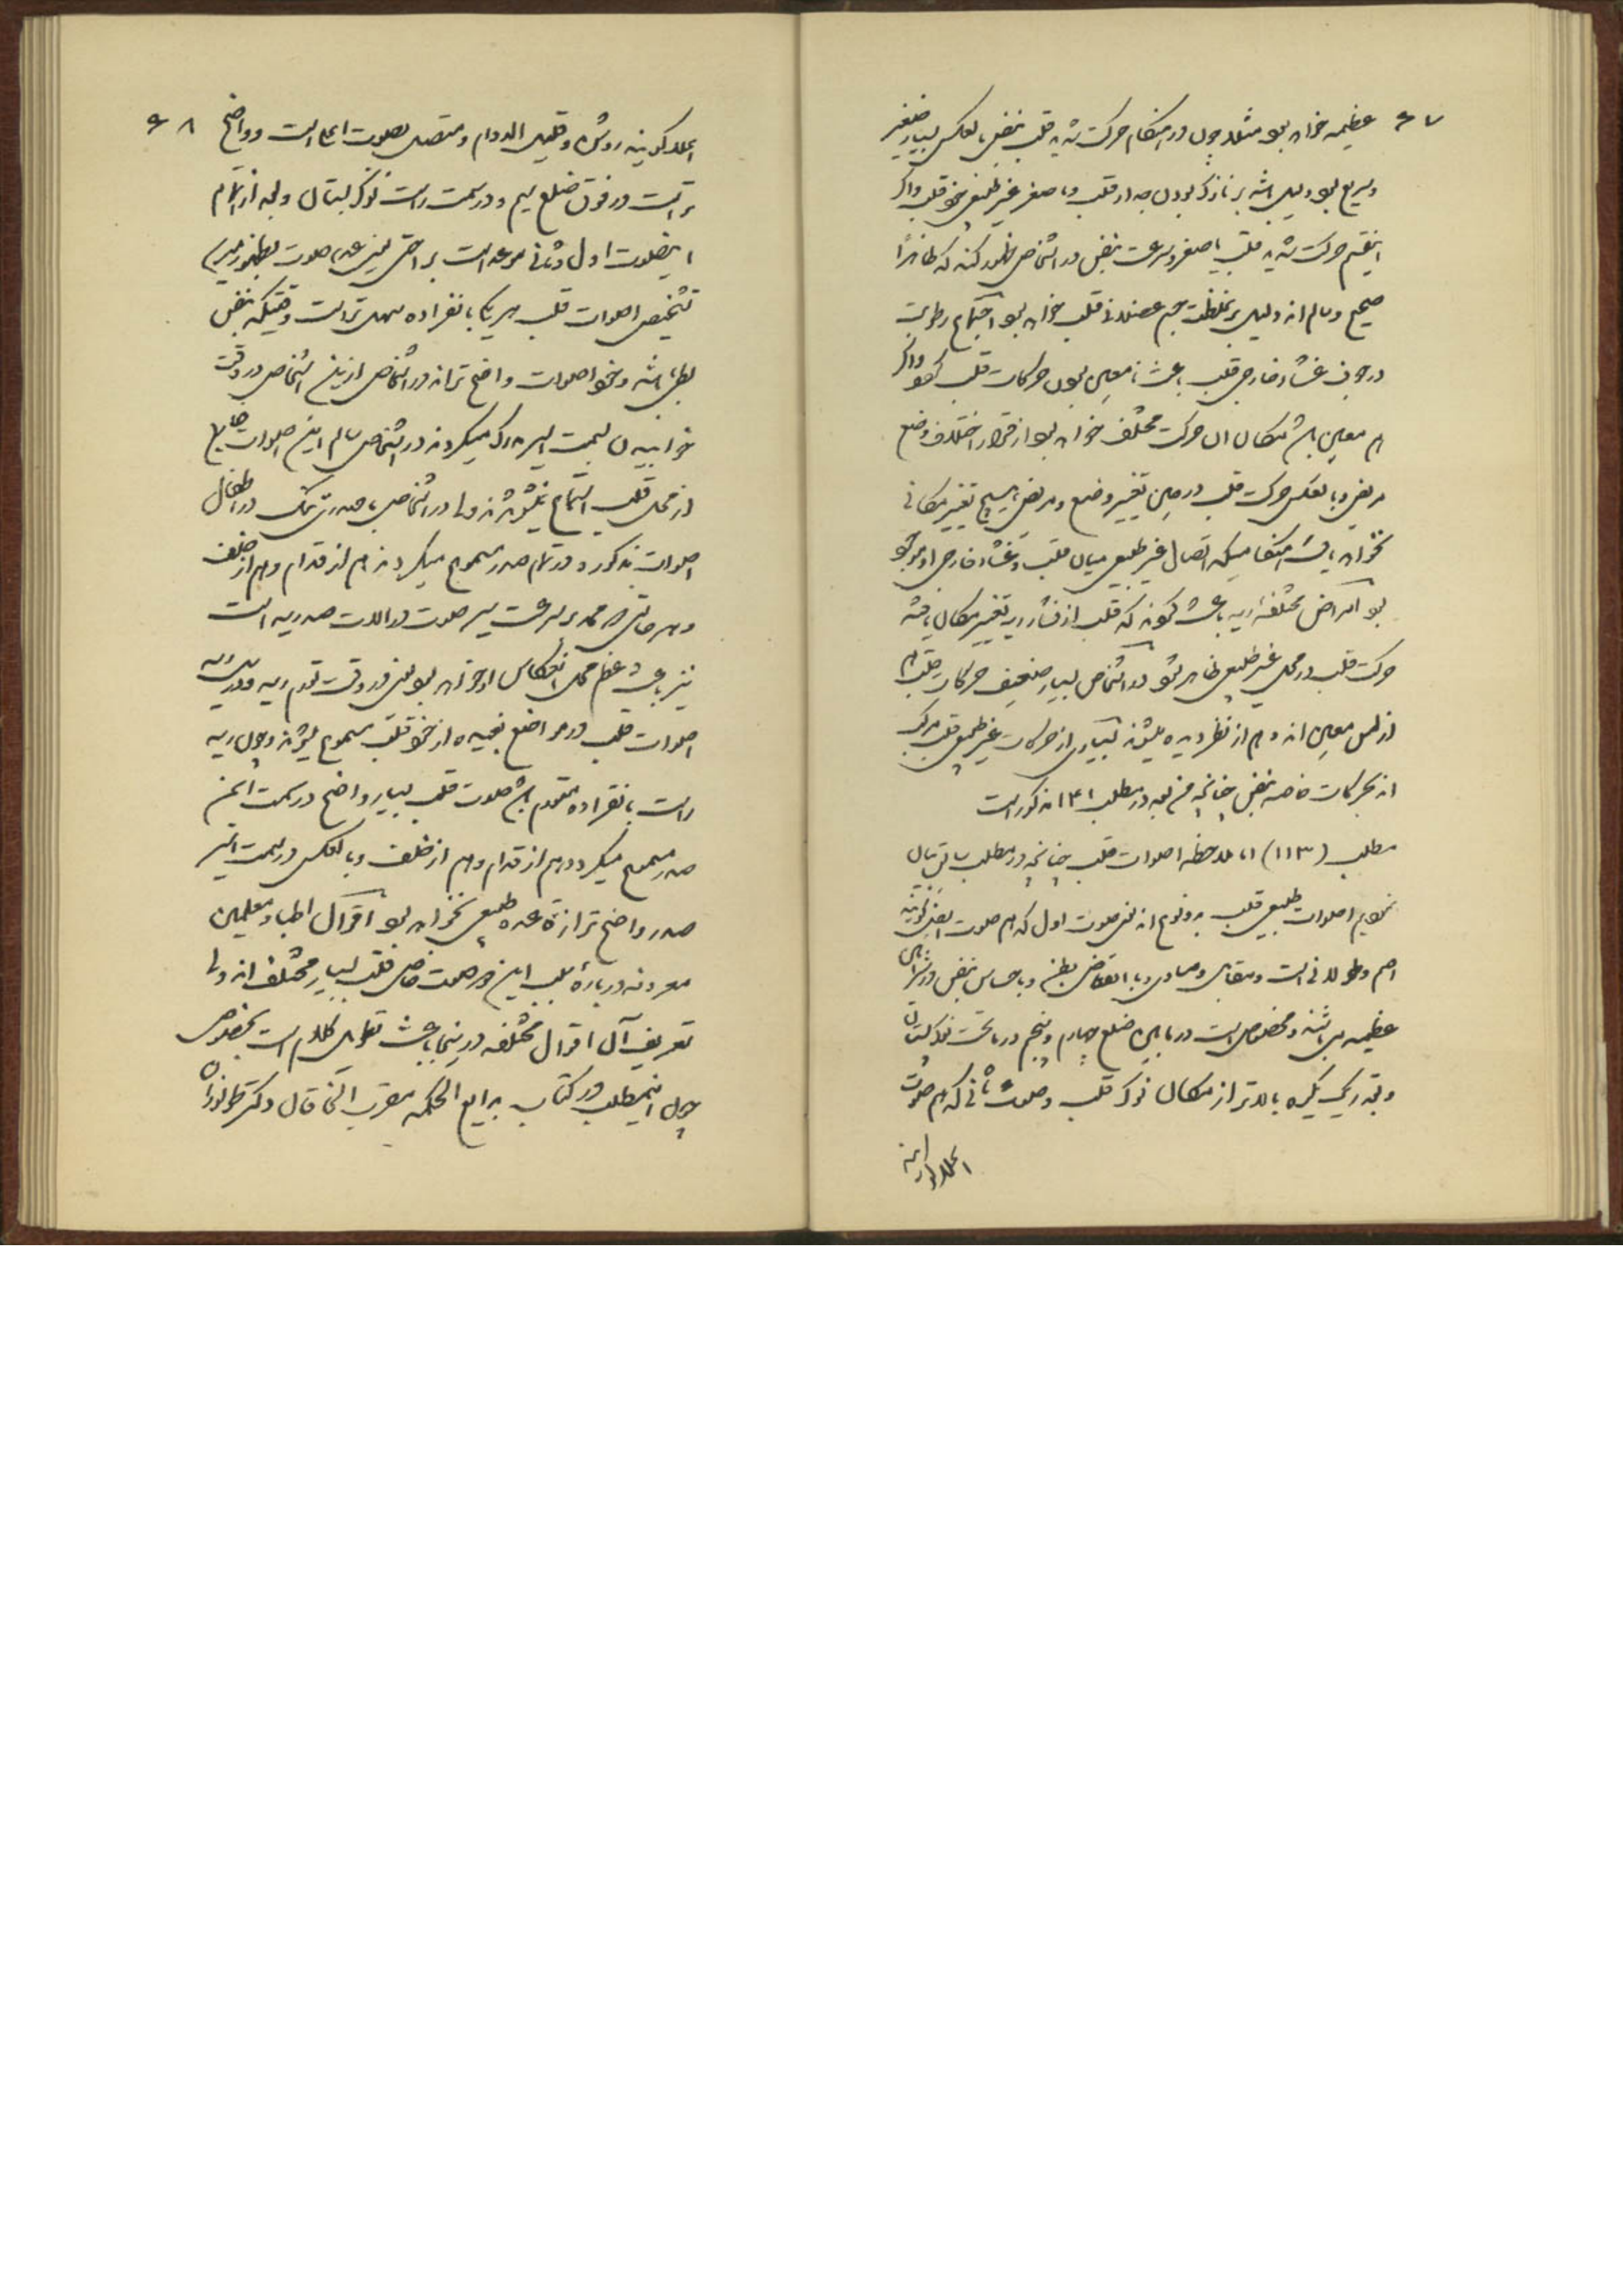 ۶۷
عظیمه خواهد بود مثلا چون در هنگام حرکت شدید قلب نبض بالعکس بسیار صغیر
و سریع بود دلیل باشد بر نازک بودن جدار قلب و یا صغر غیر طبیعی خود قلب و اگر
اینقسم حرکت شدید قلب با صغر و سرعت نبض در اشخاصی ظهور کند که ظاهرًا
صحیح و سالم اند دلیل بر غلظت جسم عضلانی قلب خواهد بود اجتماع رطوبت
در جوف غشاء خارجی قلب باعث نامعین بودن حرکات قلب و اگر
هم معین باشد مکان آن حرکت مختلف خواهد بود از قرار اختلاف وضع
مریض و بالعکس حرکت قلب در حین تغییر وضع مریض هیچ تغییر مکانی
نخواهد یافت هنگامیکه اتصال غیر طبیعی میان قلب و غشاء خارجی او موجود
بود امراض مختلفه ریه باعث گردند که قلب از فشار ریه تغییر مکان یافته
حرکت قلب در محل غیر طبیعی ظاهر شود در اشخاص بسیار ضعیف حرکات قلب هم
از لمس معین اند و هم از نظر دیده میشوند بسیاری از حرکات غیر طبیعی قلب مرکب
اند بحرکات خاصه نبض چنانچه من بعد در مطلب ۱۴۱ مذکور است
مطلب (۱۱۳) اما ملاحظه اصوات قلب چنانچه در مطلب سابق بیان
نمودیم اصوات طبیعی قلب بدو نوع اند یعنی صوت اول که هم صوت
اصم و طولانی است و مقابل و مساوی با انقباض بطن و با احساس نبض در شرائین
عظیمه می باشد و مخصوص است در مابین ضلع چهارم و پنجم در تحت نوک پستان
و بقدر یک گره بالاتر از مکان نوک قلب و صوت ثانی که هم صوت
۶۸
روشن و قلیل الدوام و متصل بصوت اول است و واضح
تر است در فوق ضلع سیم و در سمت راست نوک پستان و بعد از اتمام
اینصوت اول و ثانی موعد است بر احتی یعنی عدم صوت بظهور میرسد
تشخیص اصوات قلب هر یک بانفراده سهل تر است وقتیکه نبض
بطی باشد و خود اصوات واضح تر اند در اشخاص
خوابیدن بسمت ایسر مدرک میگردند در اشخاص سالم این اصوات خارج
از محل قلب استماع نمیشوند ولی در اشخاص با صدر تنگ و در اطفال
اصوات مذکور در تمام صدر مسموع میگردند هم از قدام و هم از خلف
و هر حالتی که ممد بر سرعت سیر صوت در آلات صدریه است
نیز باعث عظم محل انعکاس او خواهد بود یعنی در وقت تورم ریه و تدرن ریه
اصوات قلب در مواضع بعیده از خود قلب مسموع میشوند و چون ریه
راست بانفراده متورم باشد صوت قلب بسیار واضح در سمت ایمن
صدر مسموع میگردد هم از قدام و هم از خلف و بالعکس در سمت ایسر
صدر واضح تر از قاعده طبیعی نخواهد بود اقوال اطبا و معلمین
معروفه درباره سبب این دو صوت خاص قلب بسیار مختلف اند ولی
تعریف آن اقوال مختلفه در اینجا باعث تطویل کلام است بخصوص
چون اینمطلب در کتاب بدایع الحکمه مقرب الخاقان دکتر طولوزان